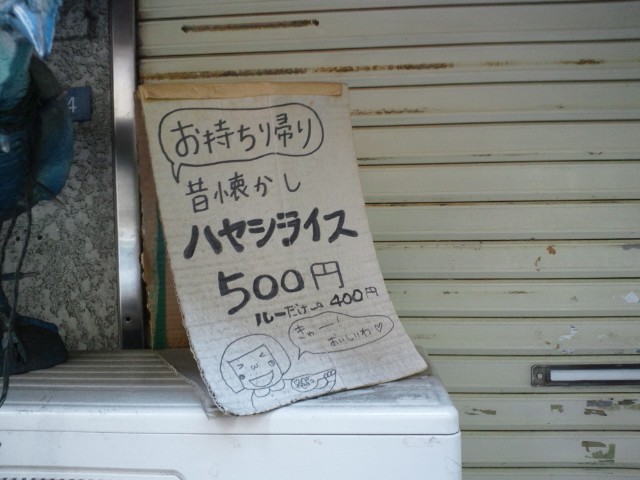 お持ちり帰り
昔懐かし
ハヤシライス
500円
ルーだけ→400円
きゃー!
おいしいわ♡
4